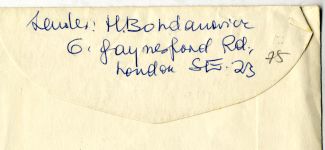 Sender: H. Bohdanowicz
6. Gaynesford Rd,
London SE. 23
75